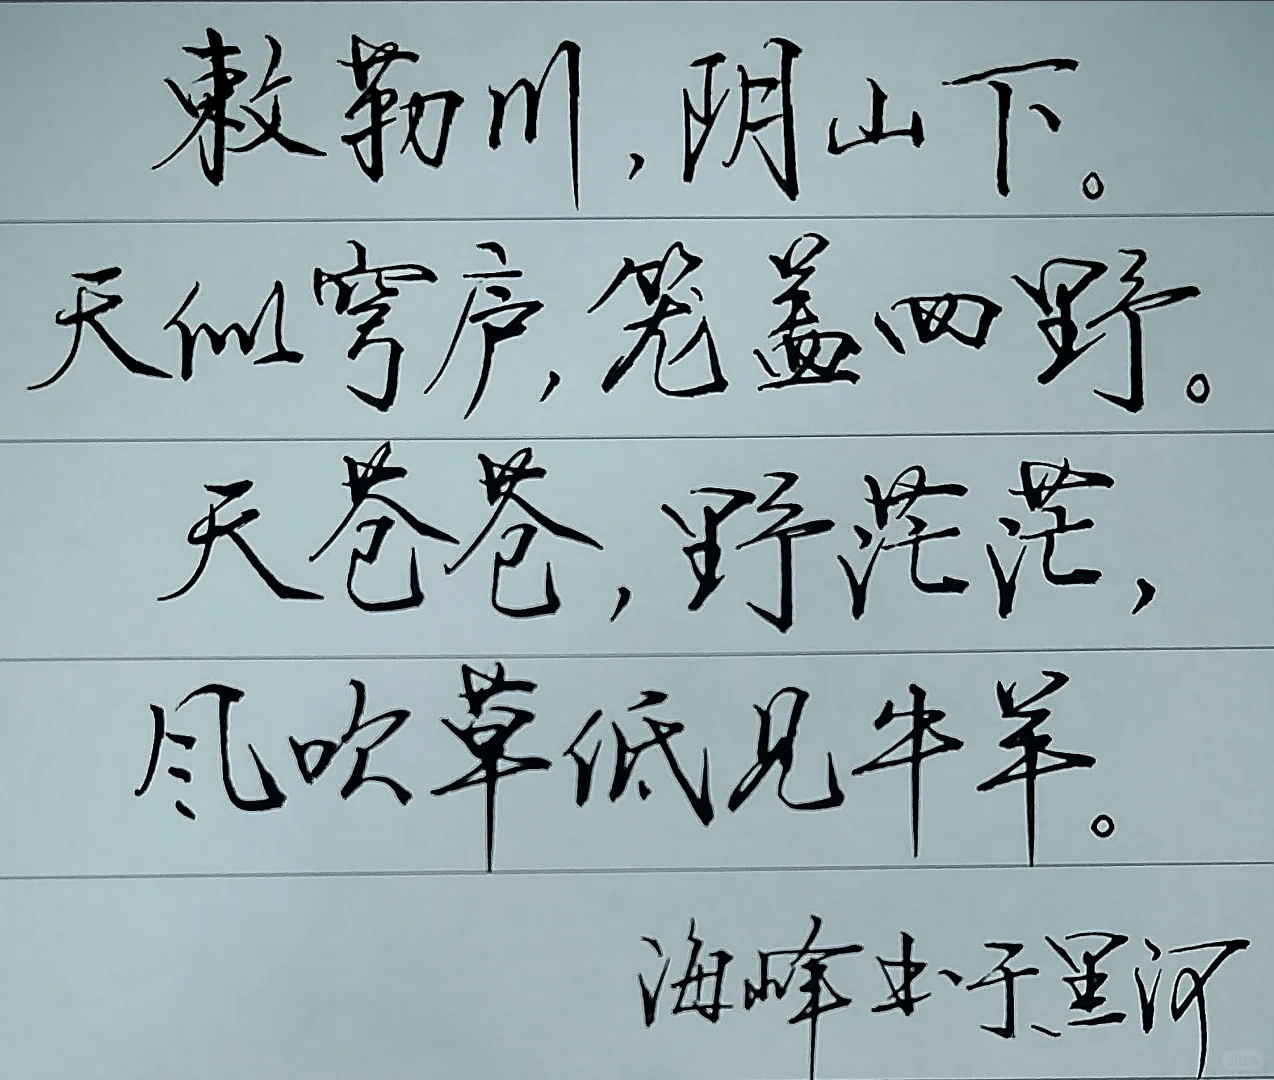 敕勒川,阴山下。
天似穹庐,笼盖四野。
天苍苍,野茫茫,
风吹草低见牛羊。
海峰书于黑河